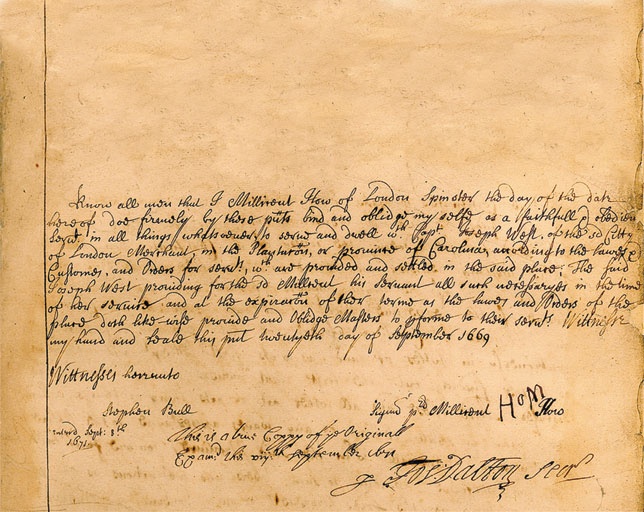 Know all men that I Millicent How of London Spinster the day of the date
hereof doe firmely by these pñts bind and oblidge my selfe as a faithfull & obedient
Servt. in all things whatsoever, to serve and dwell wth Capt. Joseph West, of the sd Citty
of London Merchant, in the Plantation, or province of Carolina, according to the lawes
Customes, and Orders for servts. wch. are provided and setled, in the said place. The said
Joseph West providing for the sd Millicent his servant all such necessaryes in the time
of her service and at the expiration of her terme as the lawes and Orders of the
place doth like wise provide and Oblidge Masters to performe to their servts. Wittness
my hand and seale this pñt twentyeth day of September 1669
Wittnesses hereunto
Stephen Bull
Signum pred Millicent HoM How
Sept: 8th
1671
This is a true Coppy of ye Originall
Examd this September 1671
p Jos Dalton Secry